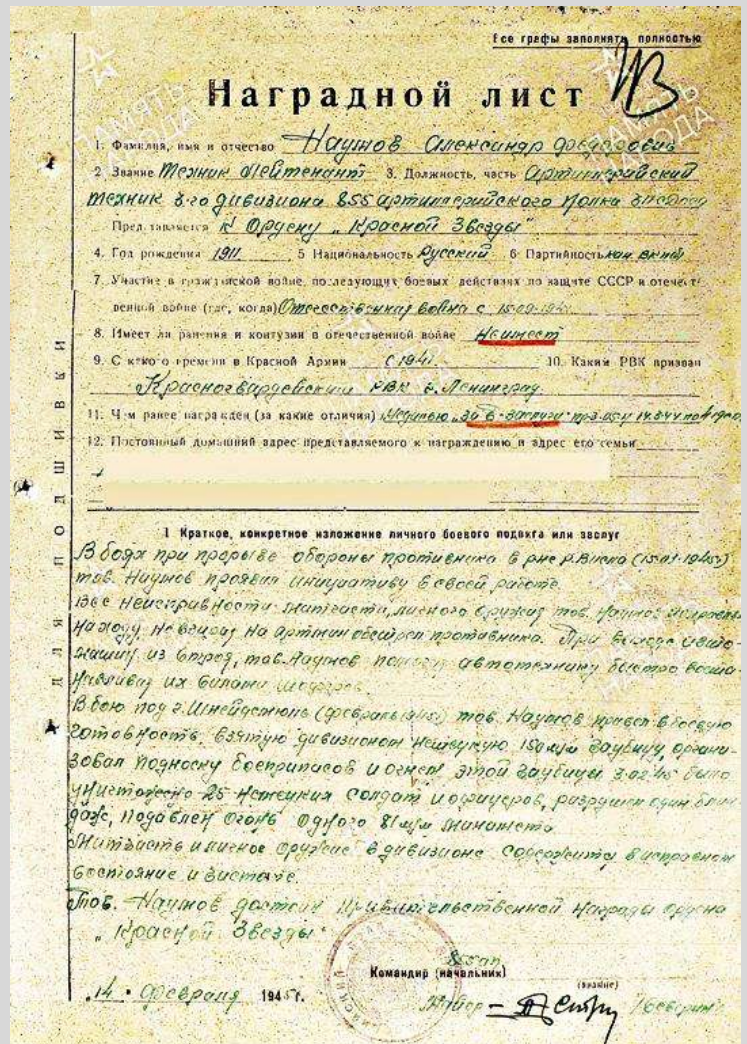 Все графы заполнять полностью
ИВ
Наградной лист
1. Фамилия, имя и отчество Наумов Александр Федорович
2 Звание Техник Лейтенант 3. Должность, часть Артиллерийский
техник 3-го дивизиона 855 артиллерийского полка
Представляется К Ордену „Красной Звезды"
4. Год рождения 1911 5 Национальность Русский 6 Партийность кан. ВКП(б)
7. Участие в гражданской войне, последующих боевых действиях по защите СССР и отечест-
венной войне (где, когда) Отечественная война с 15.09.1941
8. Имеет ли ранения и контузии в отечественной войне Неимеет
9. С какого времени в Красной Армии С 1941 10. Каким РВК призван
Красногвардейским РВК г. Ленинград
11. Чем ранее награжден (за какие отличия) Медалью „За б-заслуги"
12. Постоянный домашний адрес представляемого к награждению и адрес его семьи
ДЛЯ ПОДШИВКИ
I Краткое, конкретное изложение личного боевого подвига или заслуг
В боях при прорыве обороны противника в р-не (15.01-1945г)
тов. Наумов проявил инициативу в своей работе.
Все неисправности матчасти, личного оружия тов. Наумов
находу, невзирая на артмин обстрел противника. При выходе
машин из строя, тов. Наумов помогал автотехнику быстро восста-
навливая их силами шоферов.
В бою под г. Шнейдемюль (февраль 1945г) тов. Наумов привел в боевую
готовность, взятую дивизионом немецкую 150 м/м гаубицу, органи-
зовал подноску боеприпасов и огнем этой гаубицы 3.02.45 было
уничтожено 25 немецких солдат и офицеров, разрушен один блин-
даж, подавлен огонь одного 81 м/м миномета
Матчасть и личное оружие в дивизионе содержится в исправном
состояние и чистоте.
Тов. Наумов достоин Правительственной награды ордена
„Красной Звезды"
855 ап
Командир (начальник)
(звание)
14 • февраля 1945 г.
Майор